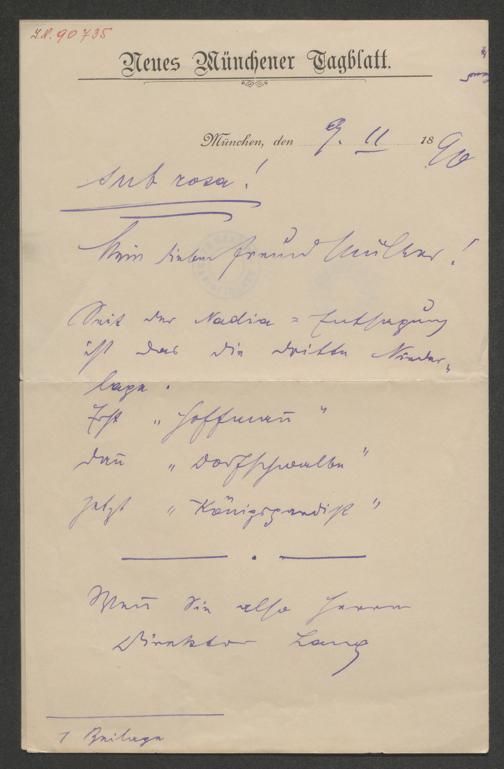 I.N. 90735
Neues Münchener Tagblatt.
München, den 9. 11 1890
sub rosa!
Mein lieber Freund Müller!
Seit der Nadia = Entsagung
ist das die dritte Nieder-
lage.
Erst "Hoffmañ"
dañ "Dorfschwalbe"
jetzt "Königspardist"
Weñ Sie also Herrn
Direktor Lang
1 Beilage